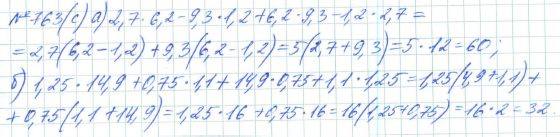 №763(с) а) 2,7·6,2-9,3·1,2+6,2·9,3-1,2·2,7=
=2,7(6,2-1,2)+9,3(6,2-1,2)=5(2,7+9,3)=5·12=60;
б) 1,25·14,9+0,75·1,1+14,9·0,75+1,1·1,25=1,25(14,9+1,1)+
+0,75(1,1+14,9)=1,25·16+0,75·16=16(1,25+0,75)=16·2=32